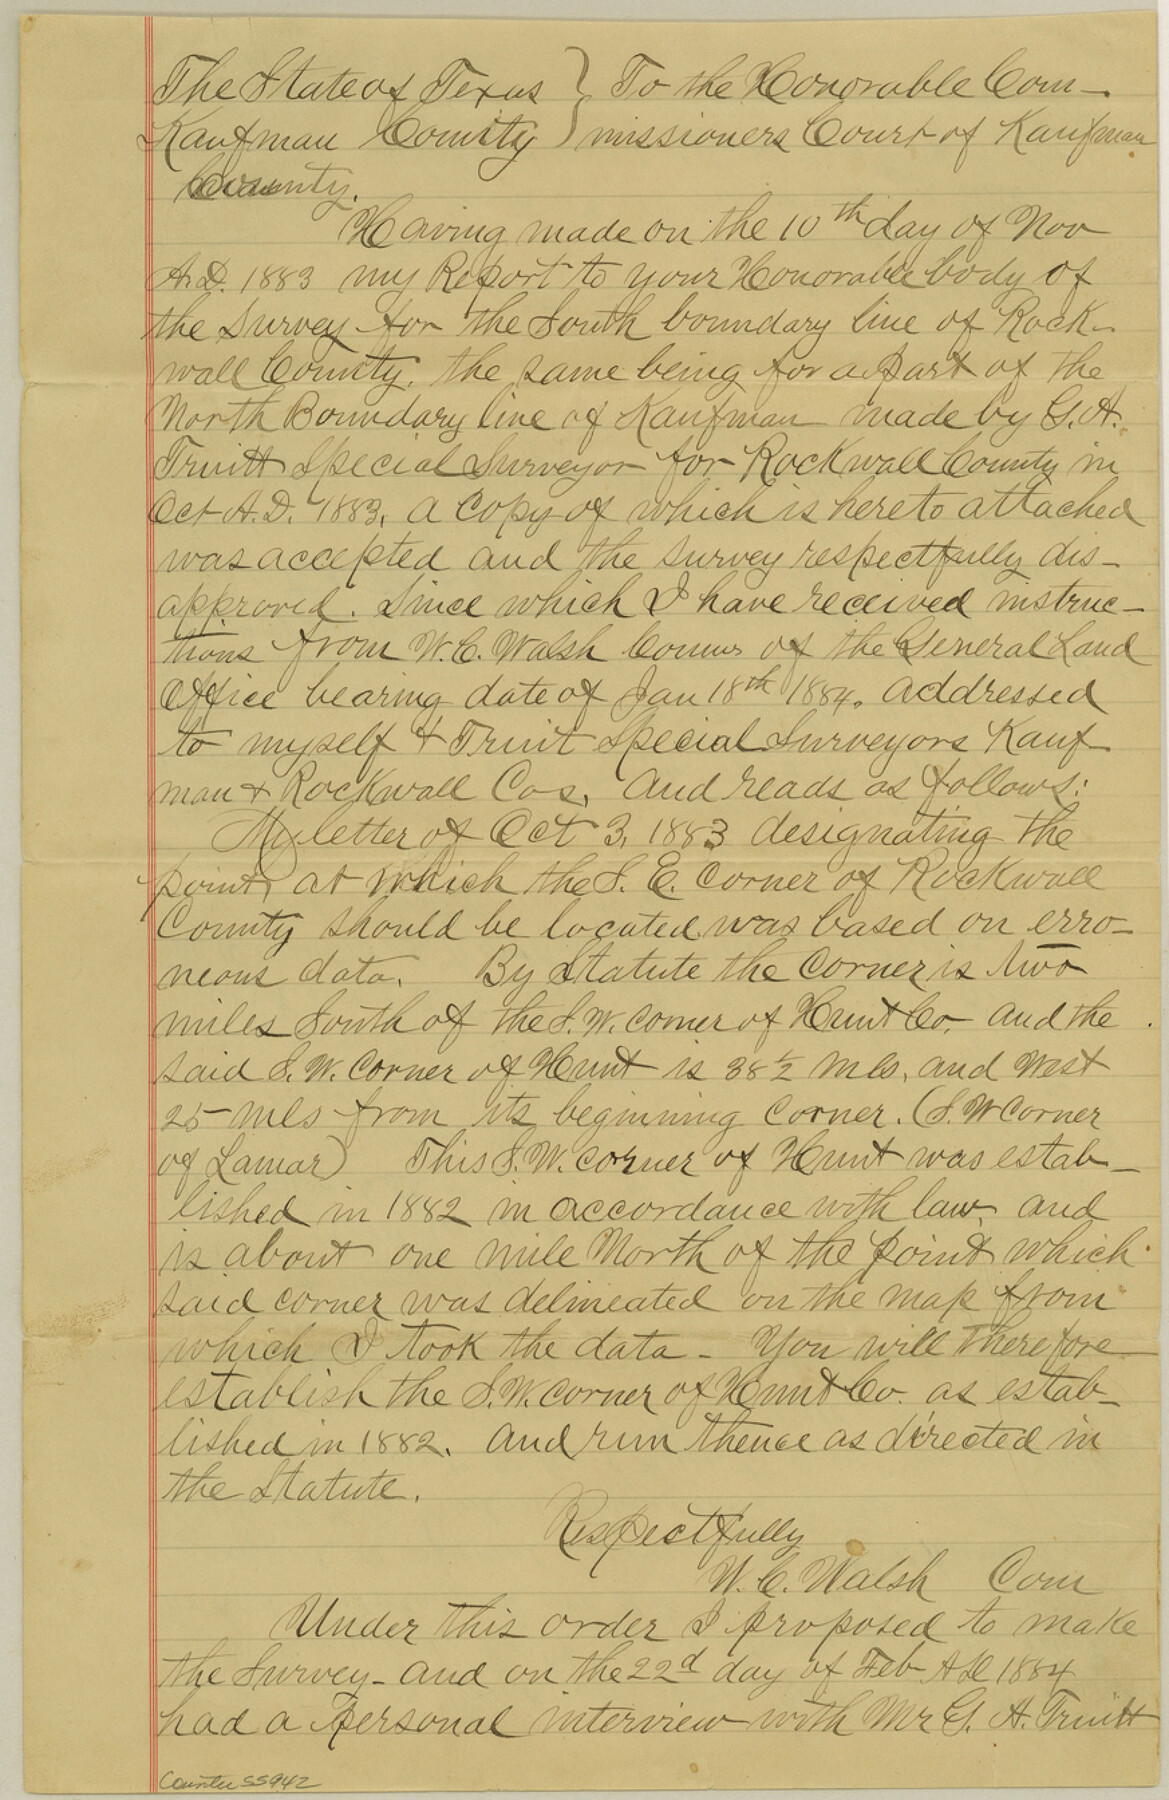 The State of Texas } To the Honorable Com-
Kaufman County } missioners Court of Kaufman
County.
Having made on the 10th day of Nov
A.D. 1883 my Report to your Honorable body of
the Survey for the South boundary line of Rock-
wall County, the same being for a part of the
North Boundary line of Kaufman made by G. A.
Truitt Special Surveyor for Rockwall County in
Oct A.D. 1883, a copy of which is hereto attached
was accepted and the survey respectfully dis-
approved. Since which I have received instruc-
tions from W.C. Walsh Comms of the General Land
Office bearing date of Jan 18th 1884. addressed
to myself & Truit Special Surveyors Kauf
man & Rockwall Cos, and reads as follows:
My letter of Oct 3, 1883 designating the
point, at which the S. E. Corner of Rockwall
County should be located was based on erro-
neous data. By Statute the Corner is two
miles South of the S.W. corner of Hunt Co. and the
said S. W. Corner of Hunt is 38½ mls, and West
25 mls from its beginning Corner. (S. W Corner
of Lamar) This S. W. corner of Hunt was estab-
lished in 1882 in accordance with law, and
is about one mile North of the point which
said corner was delineated on the map from
which I took the data - You will therefore
establish the S.W. corner of Hunt Co. as estab-
lished in 1882. and run thence as directed in
the Statute.
Respectfully
W. C. Walsh Com
Under this order I proposed to make
the Survey - and on the 22d day of Feb AD 1884
had a personal interview with Mr G. A. Truitt
Counter 55942